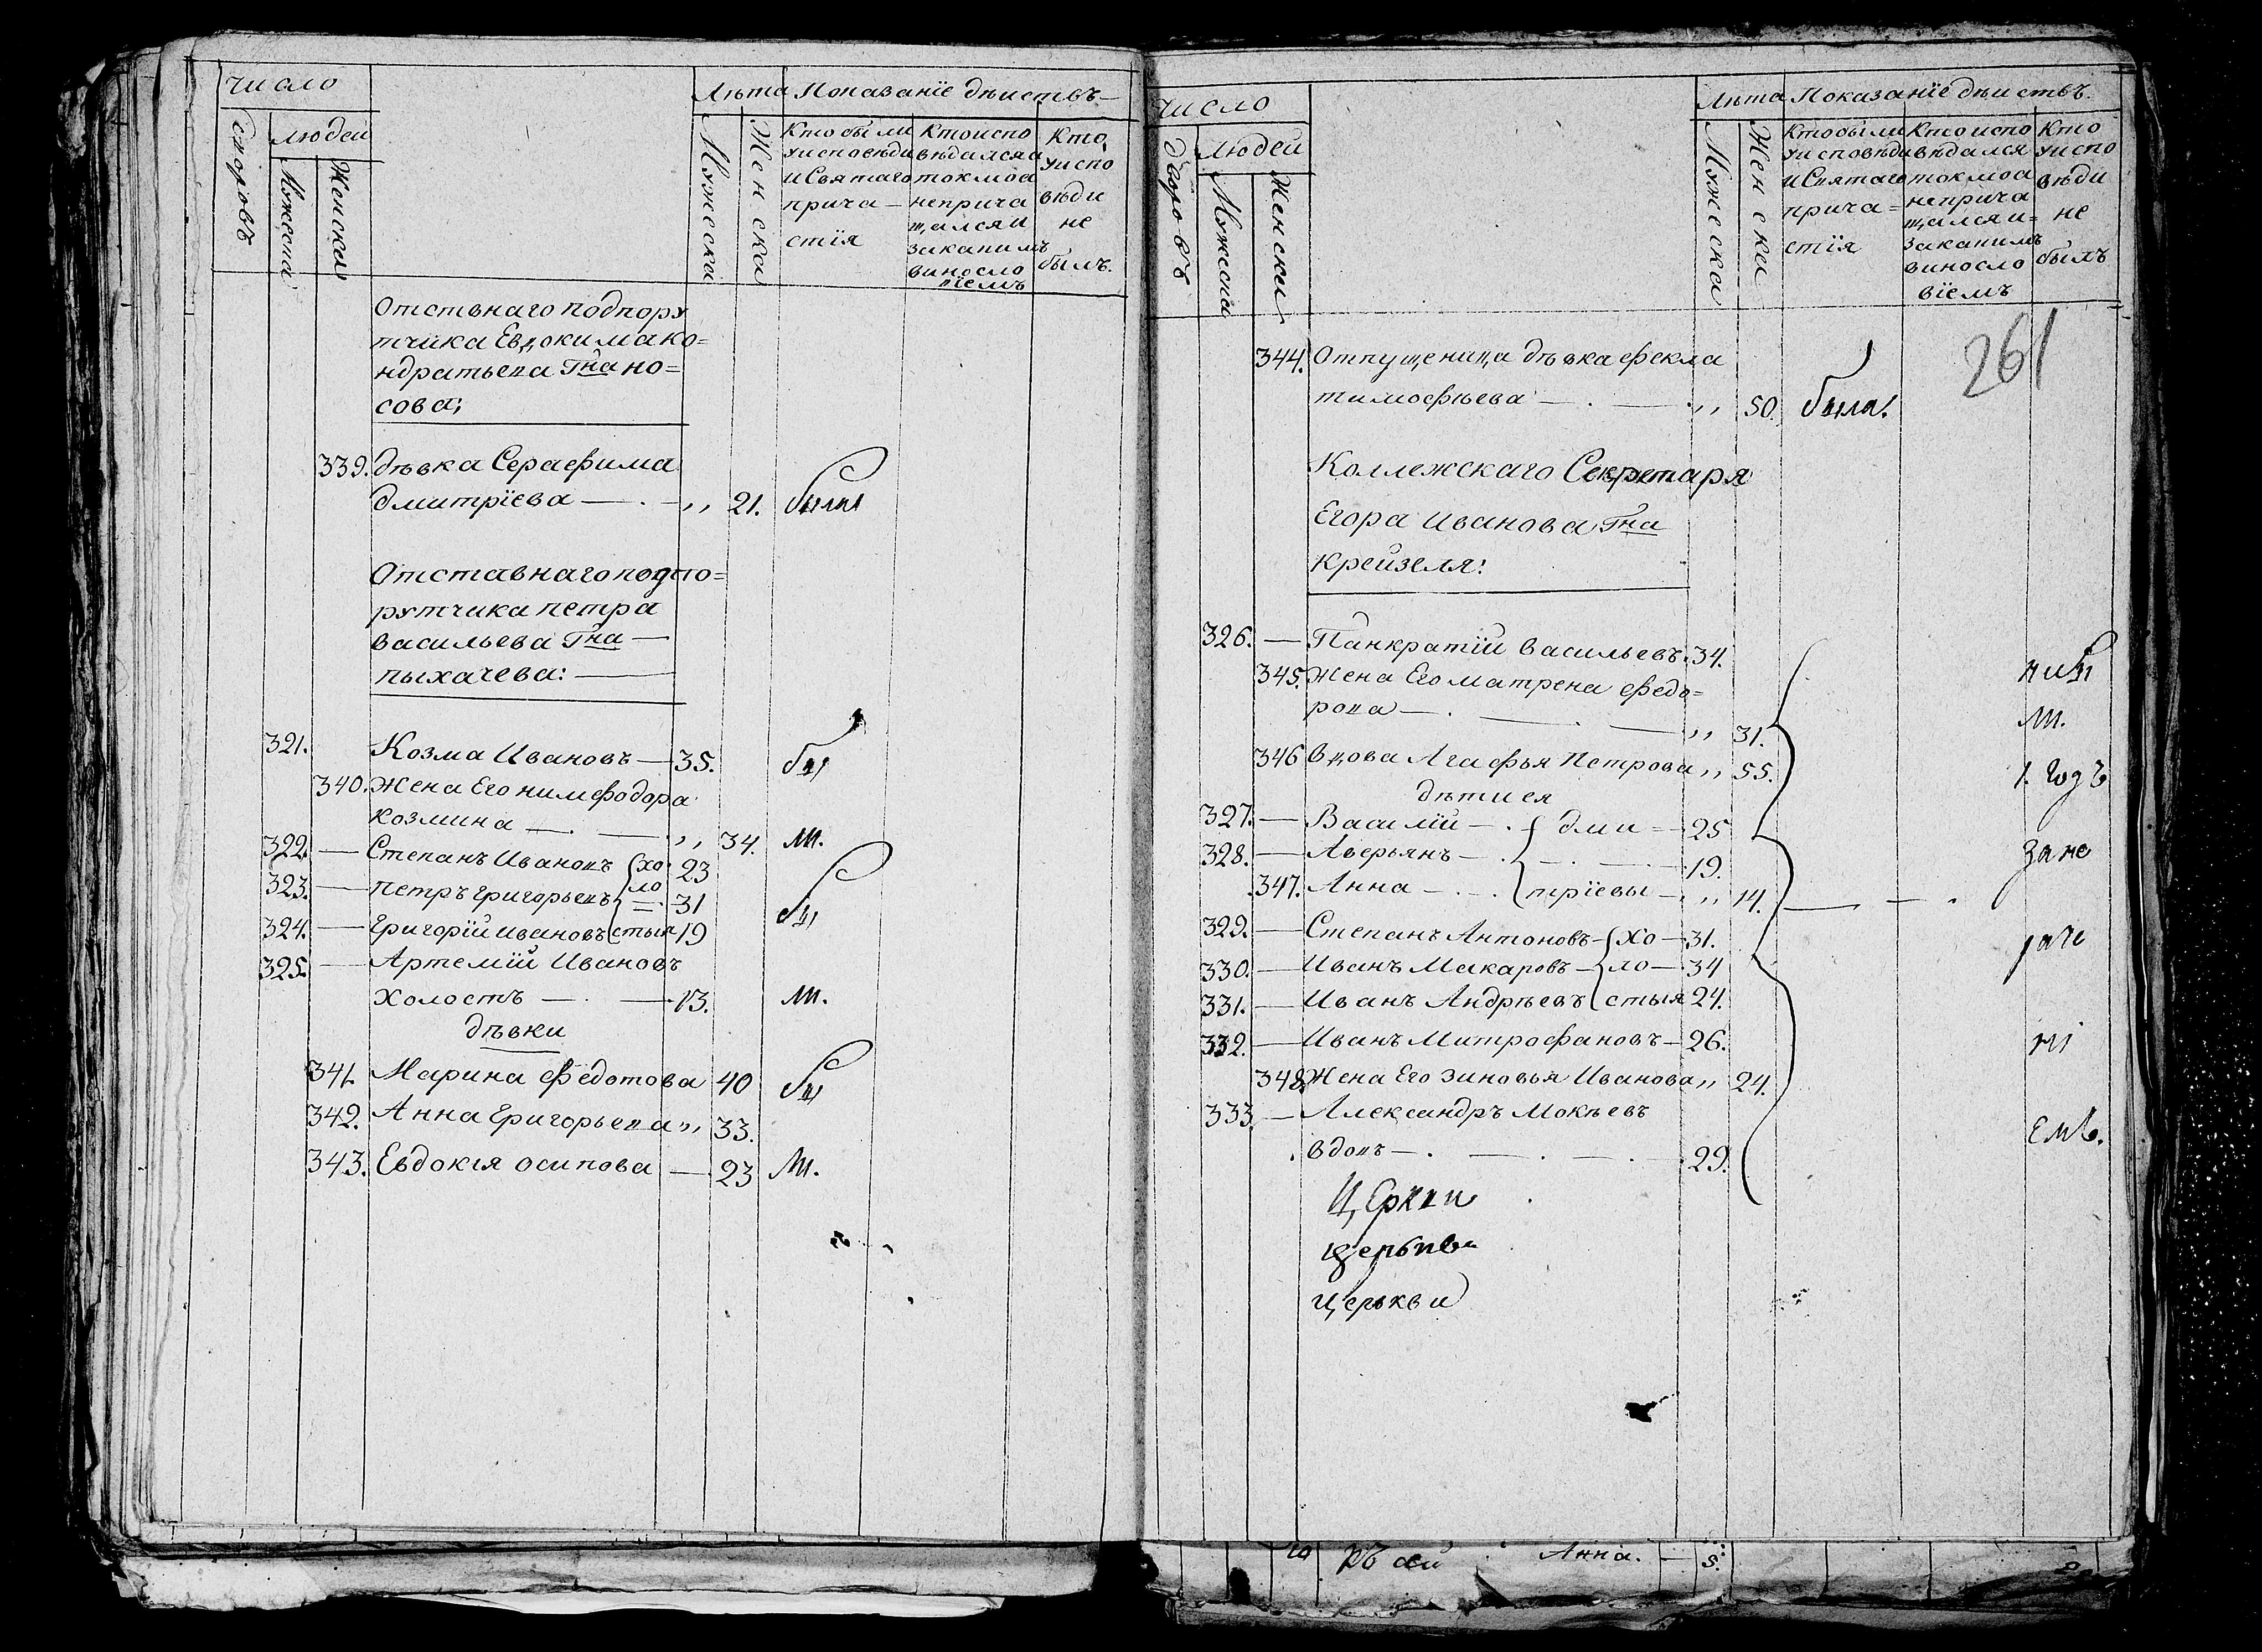 число
Лѣта Показанїе дѣиствъ
дворовъ
людей
Мужеска
Женска
Мужеска
Женска
Кто были
уисповѣди
и Святаго
прича-
стїя
Кто испо
вѣдался а
токмо а
неприча
щался и
закаким
винosло
вїемъ
Кто
уиспо
вѣди
не
былъ.
Отствнаго подпору
тчика Евдокима Ко=
ндратьева Гна но=
сова;
339. дѣвка Серафима
дмитрїева — . — ,, 21. была
Отставнаго подпо=
рутчика петра
васильева Гна —
пыхачева: —
321. Козма Ивановъ — 35. бы
340. Жена Его нимфодора
козмина — . — ,, 34. ли.
322. — Степанъ Ивановъ { хо 23
323. — петръ григорьевъ { ло 31 бы
324. — григорїй ивановъ { стыя 19
325. — Артемїй Ивановъ
холостъ — . — 13. ли.
дѣвки
341. Марина Федотова 40 бы
342. Анна григорьева ,, 33.
343. Евдокїя осипова — 23 ли.
число
Лѣта Показанїе дѣиствъ.
дворовъ
людей
Мужеска
Женска
Мужеска
Женска
Кто были
уисповѣди
и Святаго
прича=
стїя
Кто испо
вѣдался
токмо а
неприча
щался и=
закакимъ
винosло
вїемъ
Кто
уиспо
вѣди
не
былъ
261
344. Отпущеница дѣвка фекла
тимофѣева — . — . ,, 50. была.
Коллежскаго Секретаря
Егора Иванова Гна
крейзеля:
326. — Панкратїй васильевъ . 34.
345. Жена Его матрена федо=
рова — . — . — ,, 31.
346 вдова Агафья Петрова ,, 55.
дѣти ея
327. — Василїй — . { дми = 25
328. — Аверьянъ — . { — . — 19.
347. Анна — . — . { трїевы — ,, 14. — — .
329. — Степанъ Антоновъ — { хо — 31.
330. — Иванъ Макаровъ — { ло — 34
331. — Иванъ Андрѣевъ { стыя 24.
332. — Иванъ Митрофановъ — 26.
348. Жена Его Зиновья Иванова ,, 24.
333. — Александръ Мокѣевъ
вдовъ — . — . — . 29.
ни бы
ли.
1. годъ
за не
раче
нї
емъ.
Церкви
церькви
Анна. — 5.